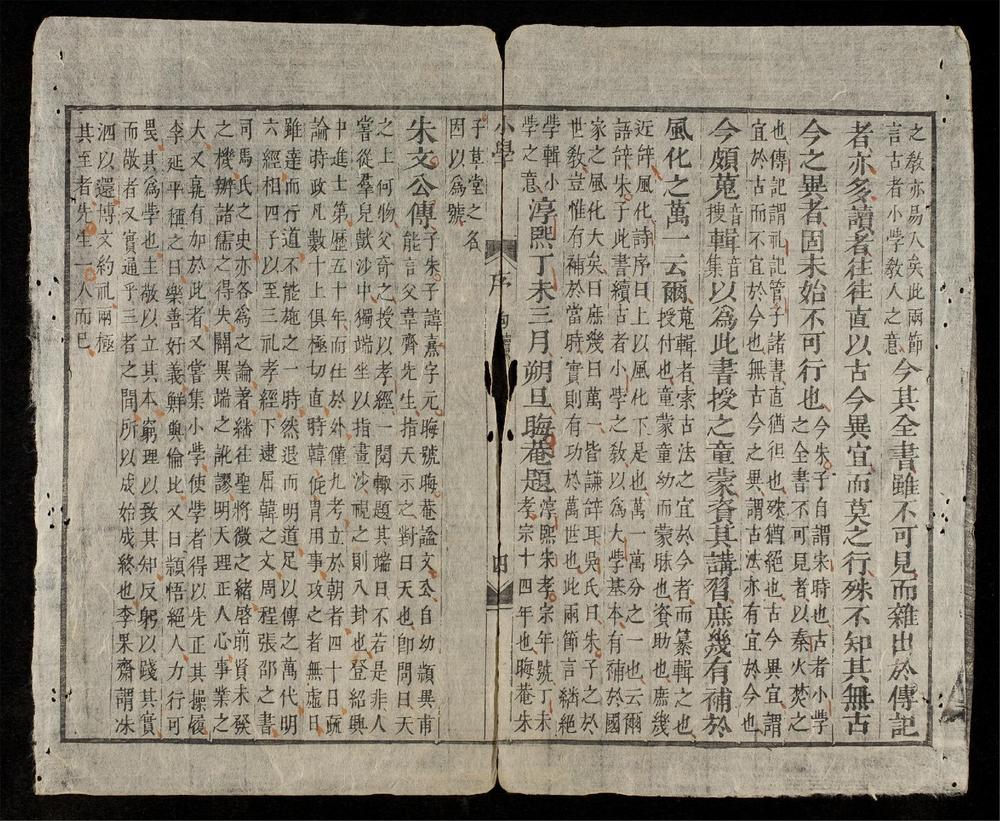 之敎亦易入矣此兩節
言古者小學敎人之意
今其全書雖不可見而雜出於傳記
者亦多讀者往往直以古今異宜而莫之行殊不知其無古
今之異者固未始不可行也
今朱子自謂宋時也古者小學
之全書不可見者以秦火焚之
也傳記謂礼記管子諸書直猶徂也殊猶絕也古今異宜謂
宜於古而不宜於今也無古今之異謂古法亦有宜於今也
今頗蒐音搜輯音集以爲此書授之童蒙資其講習庶幾有補於
風化之萬一云爾
蒐輯者索古法之宜於今者而纂輯之也
授付也童蒙童幼而蒙昧也資助也庶幾
近辝風化詩序曰上以風化下是也萬一萬分之一也云爾
語辝朱子此書續古者小學之敎以爲大學基本有補於國
家之風化大矣曰庶幾曰萬一皆謙辝耳吳氏曰朱子之於
世敎豈惟有補於當時實則有功於萬世也此兩節言繙絕
學輯小
學之意
淳熙丁未三月朔旦晦菴題
淳熙宋孝宗年號丁未
孝宗十四年也晦菴朱
小學 序 四
子草堂之名
因以爲號
朱文公傳
子朱子諱熹字元晦號晦菴諡文公自幼頴異甫
能言父韋齊先生指天示之對曰天也卽問曰天
之上何物父奇之授以孝經一閱輙題其端曰不若是非人
嘗從羣兒戯沙中獨端坐以指畫沙視之則八卦也登紹興
中進士第歷五十年而仕於外僅九考立於朝者四十日䟽
論時政凡數十上俱極切直時韓侂冑用事攻之者無虛日
雖達而行道不能施之一時然退而明道足以傳之萬代明
六經相四子以至三礼孝經下逮屈韓之文周程張邵之書
司馬氏之史亦各爲之論著繙徃聖將微之緒啓前賢未發
之機辦諸儒之得失闢異端之訛謬明天理正人心事業之
大又孰有加於此者又嘗集小學使學者得以先正其操履
李延平稱之曰樂善好義鮮與倫比又曰頴悟絕人力行可
畏其爲學也主敬以立其本窮理以致其知反躬以踐其實
而敬者又實通乎三者之間所以成始成終也李果齋謂洙
泗以還博文約礼兩極
其至者先生一人而已